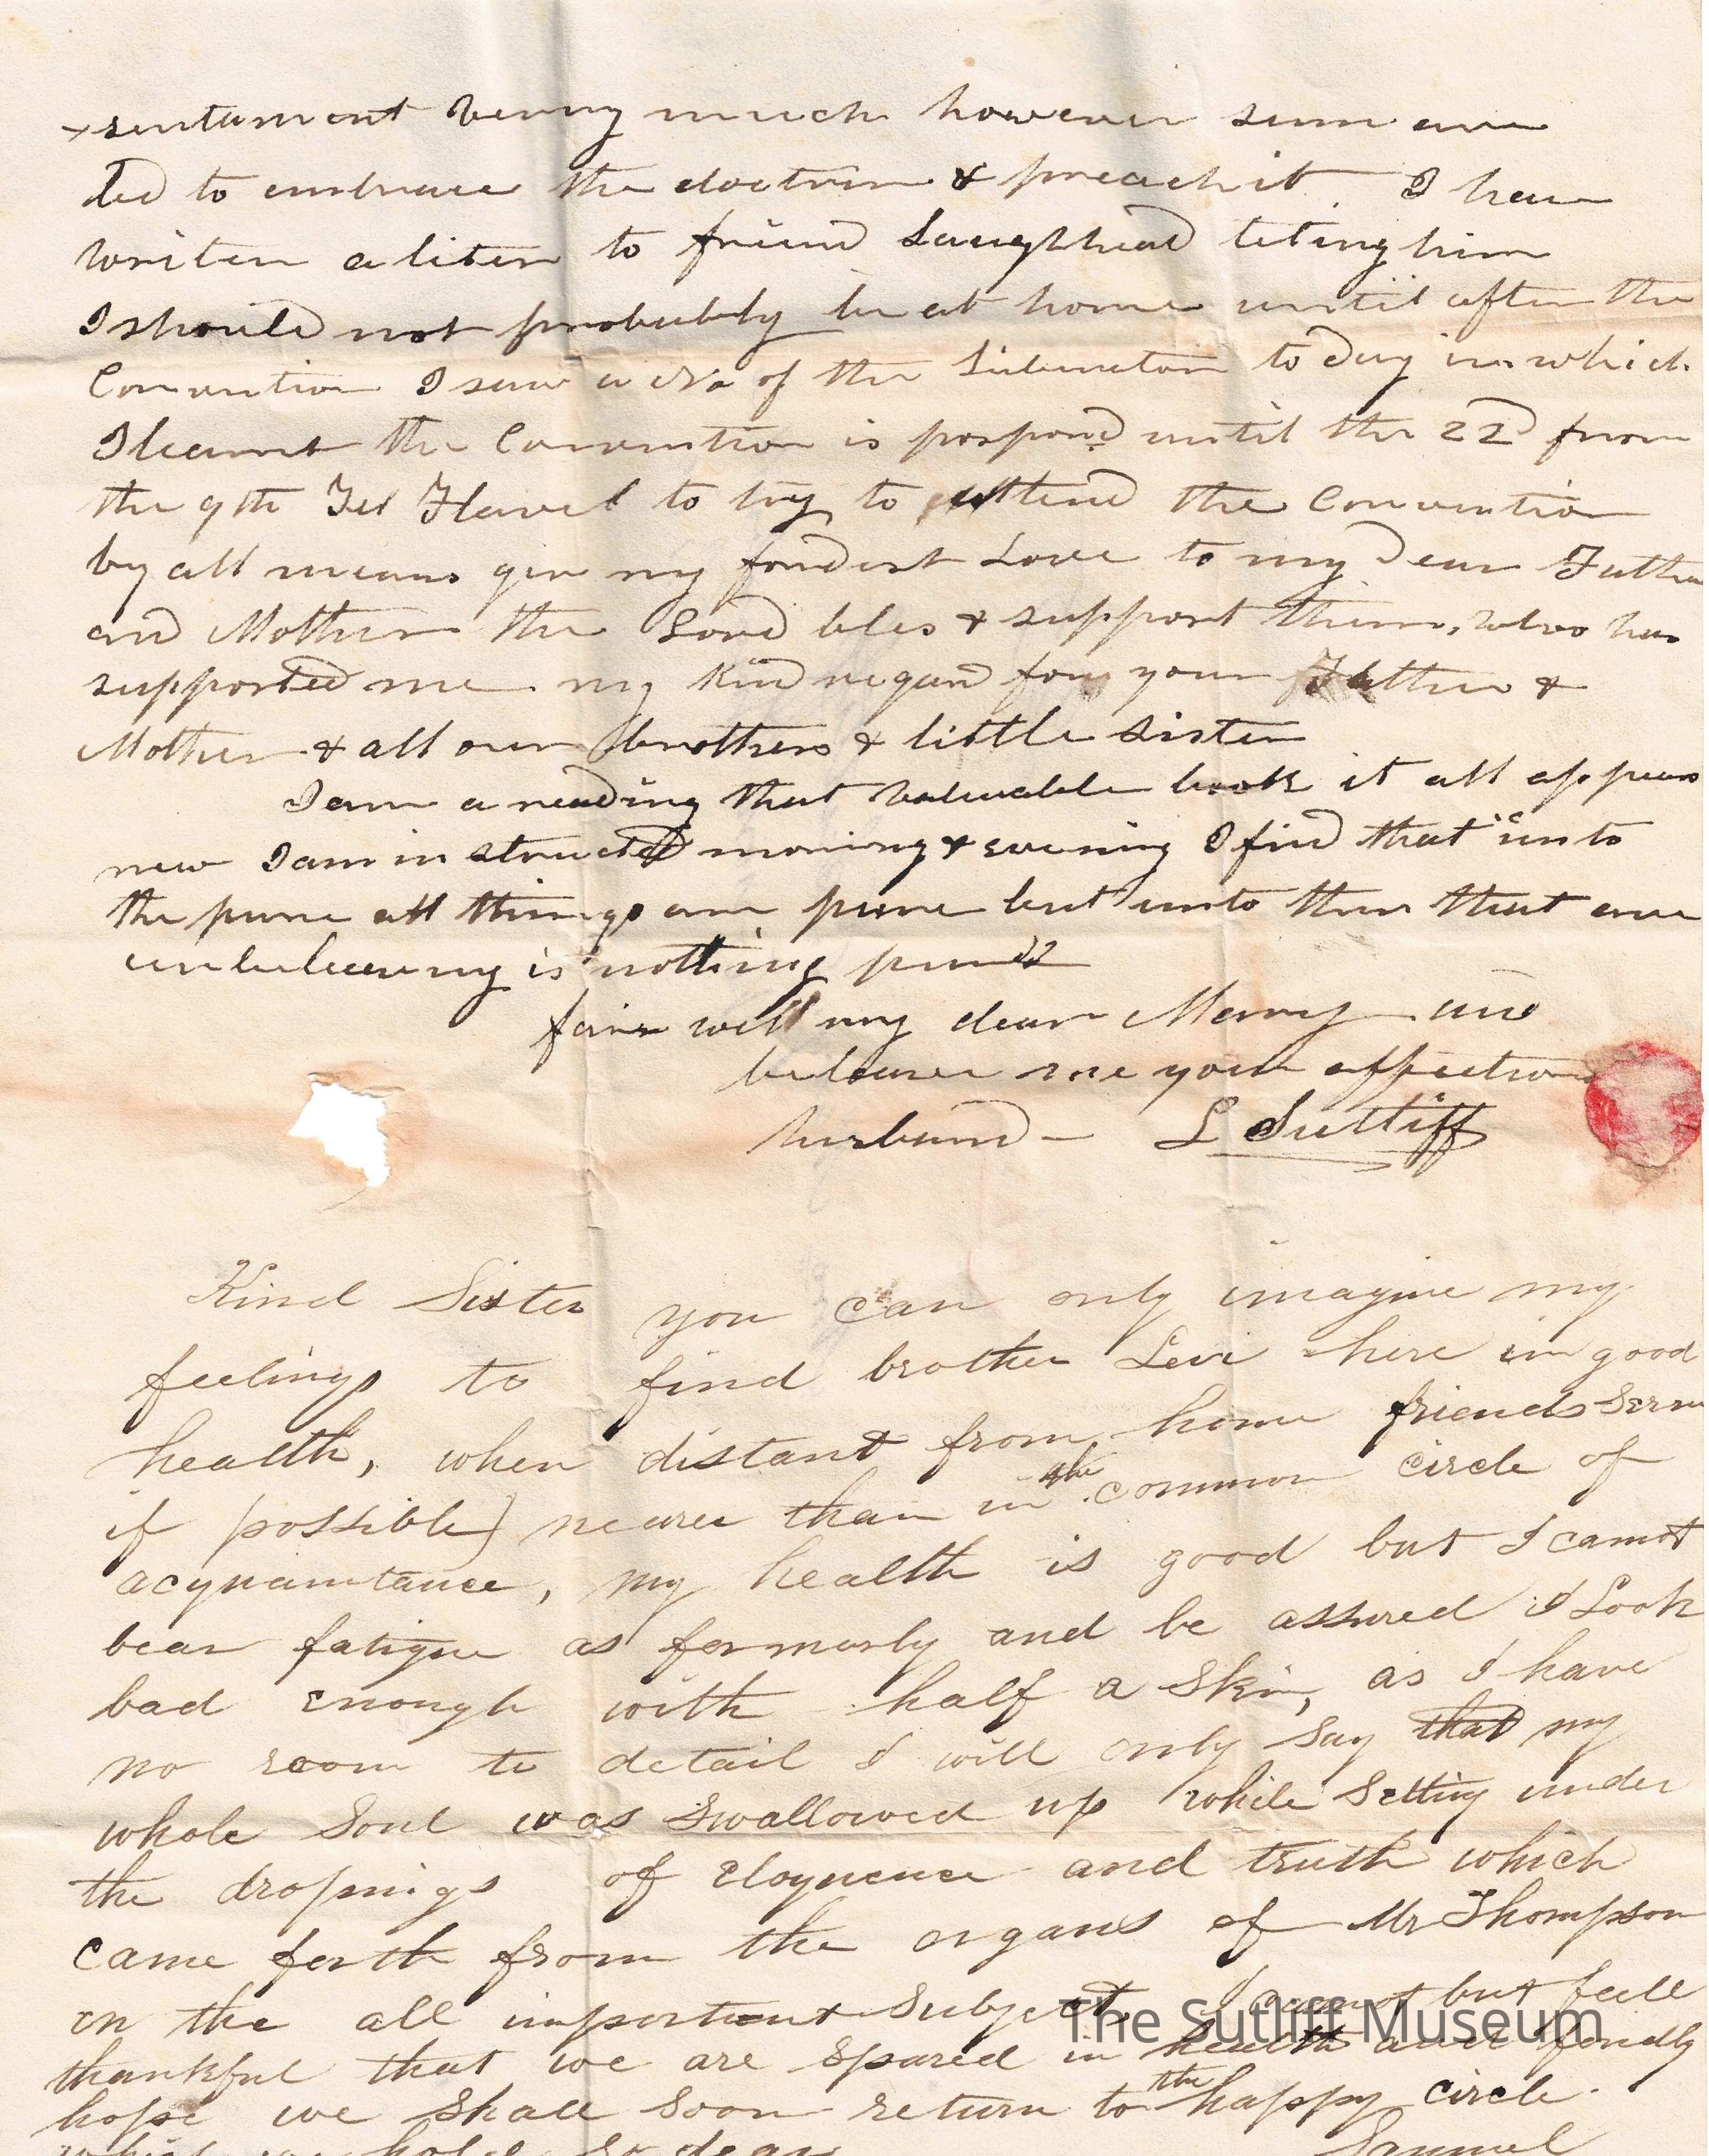 sentament verry much however sum are
led to embrace the doctrin & preach it I have
writen a liter to friend Laughhead teting him
I should not probubbly be at home until after the
Convention I saw a No of the Liberator to day in which
I learnt the Convention is pospond until the 22d from
the 9th Tel Flavel to try to attend the Convention
by all means give my fondest Love to my Dear Father
and Mother the Lord bles & support them, who has
supported me my kind regard for your Father &
Mother & all our brothers & little sister
I am a reading that valuable book it all appears
new I am instructed morning & evening I find that "unto
the pure all things are pure but unto them that are
unbeleeving is nothing pure"
fair well my dear Marry and
beleave me your affection
husband - L Sutliff
Kind Sister you can only imagine my
feelings to find brother Levi here in good
health, when distant from home friends seem
if possible) nearer than in the common circle of
acquaintance, my health is good but I cannot
bear fatigue as formerly and be assured I Look
bad enough with half a Skin, as I have
no room to detail I will only Say that my
whole Soul was Swallowed up while Setting under
the dropings of Eloquence and truth which
came forth from the organs of Mr Thompson
on the all important Subject, I cannot but feell
thankful that we are Spared in health and fondly
hope we Shall Soon return to the happy circle.
which we hold so dear Samuel
The Sutliff Museum